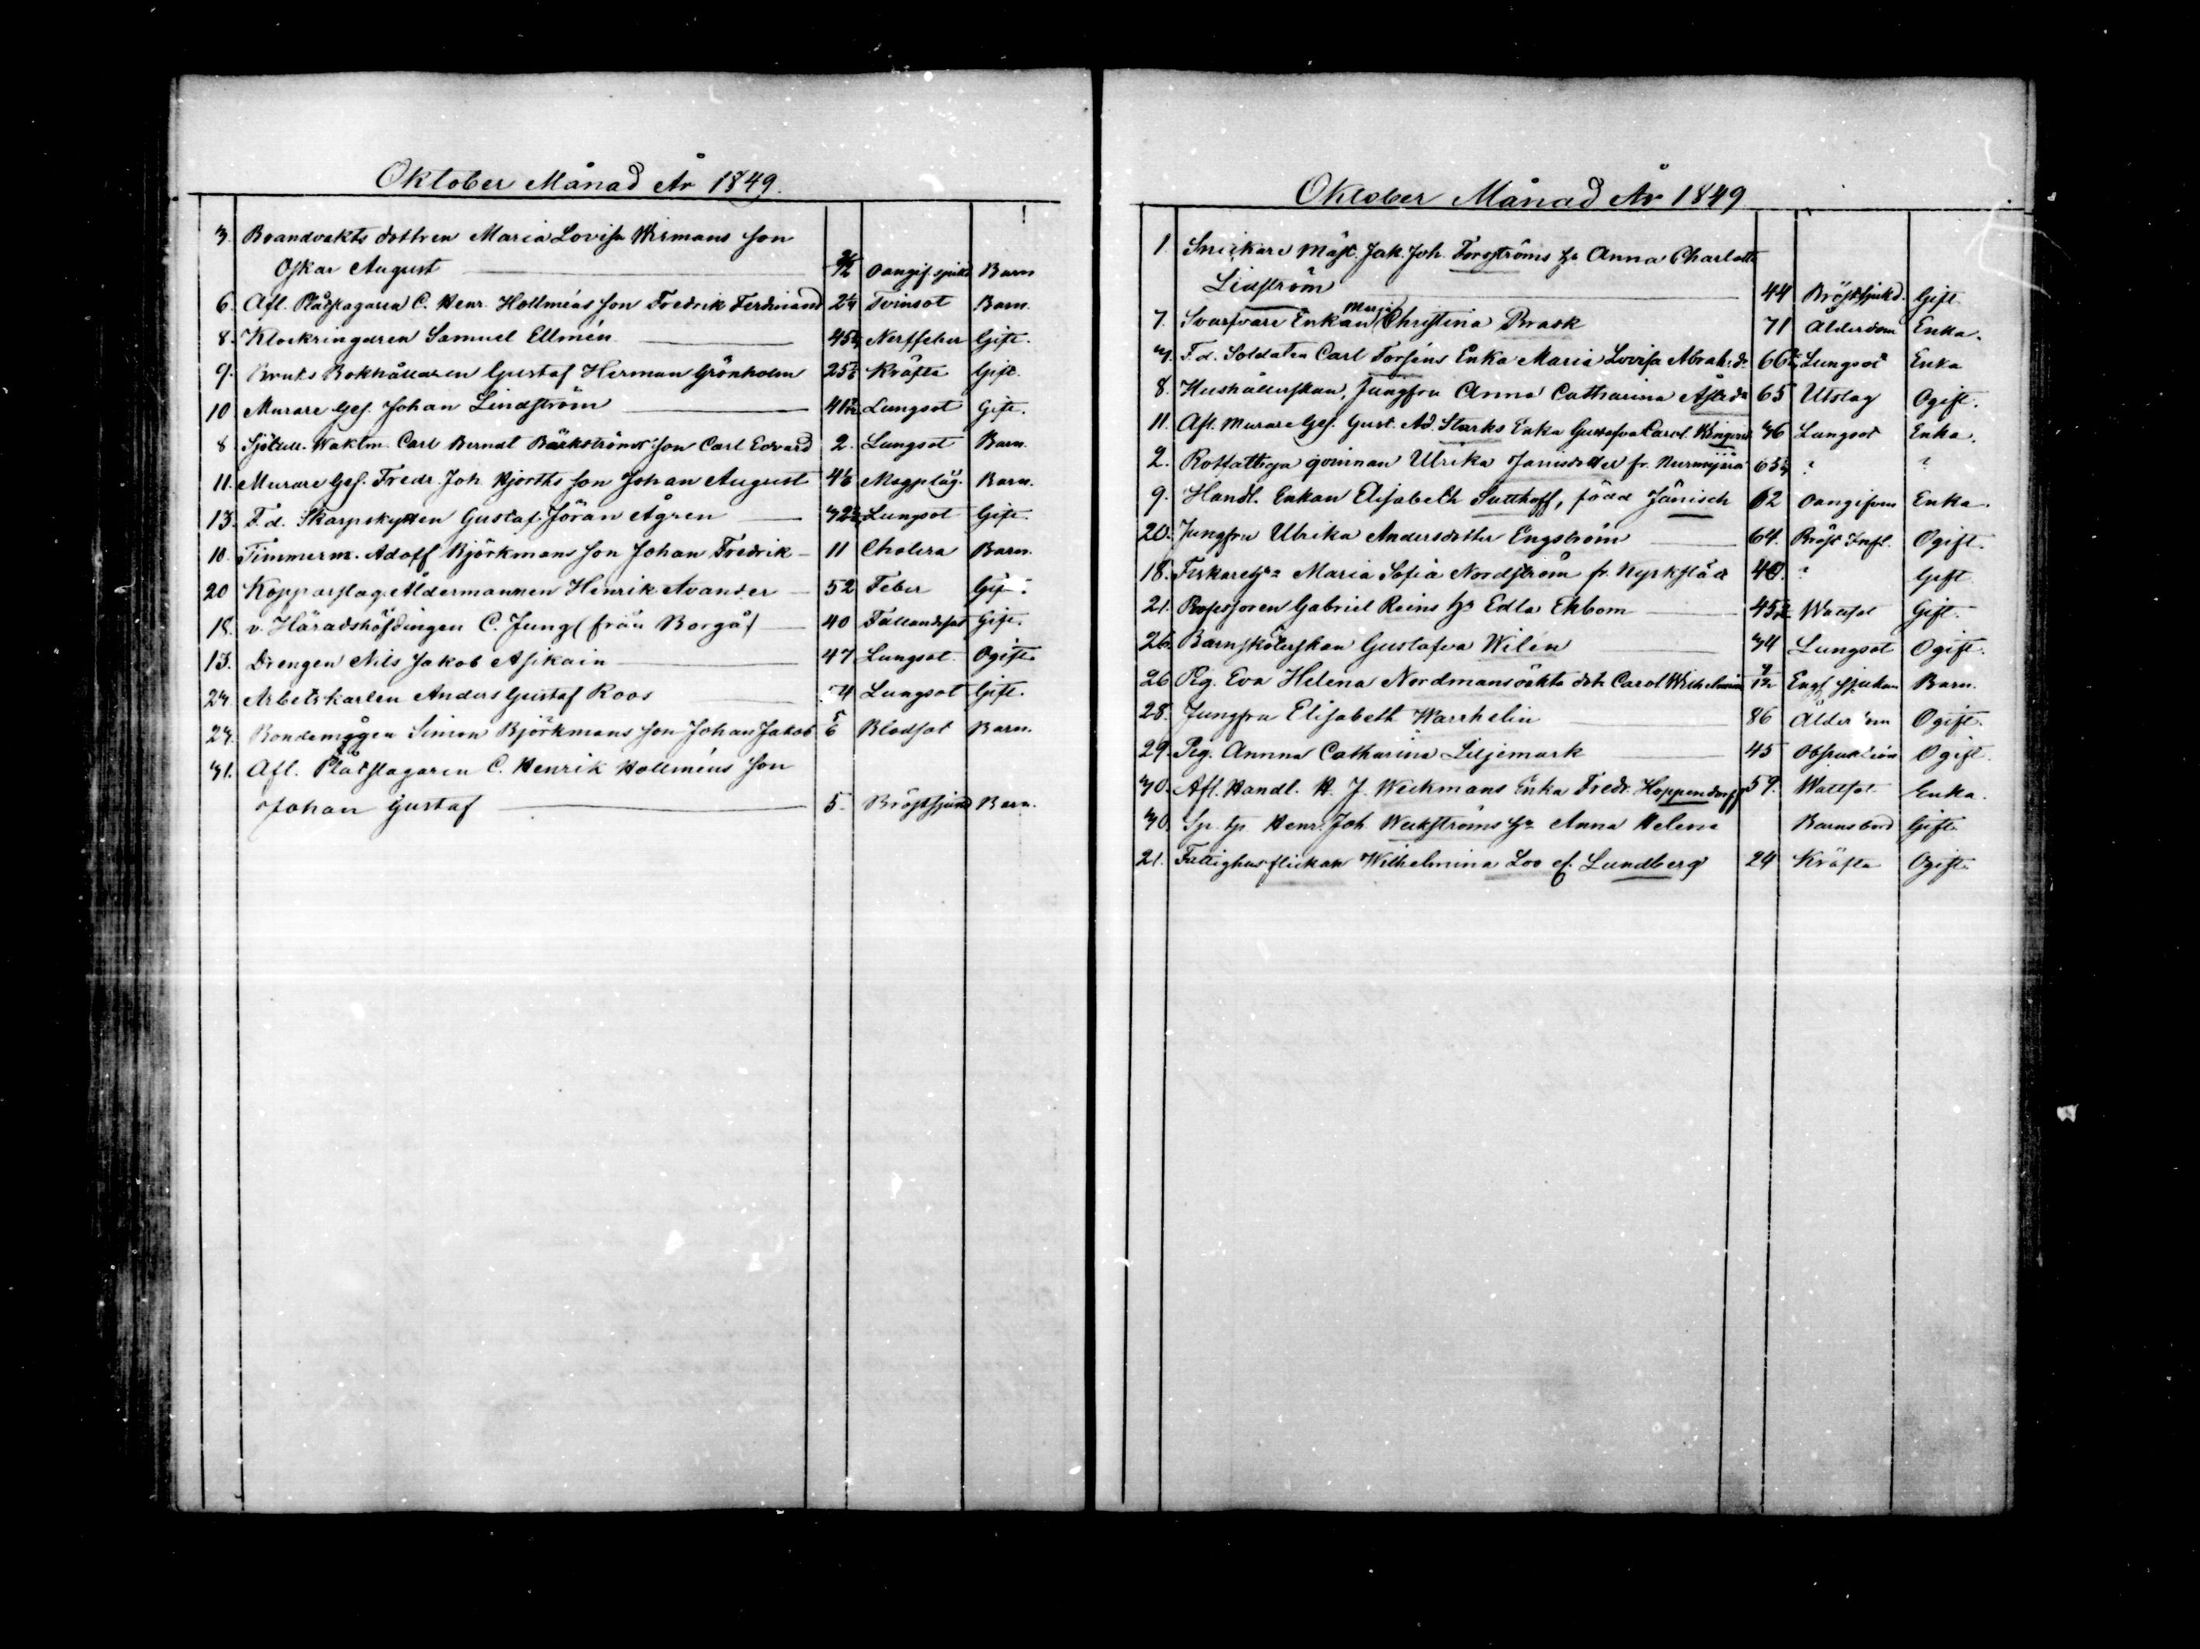 Oktober Månad År 1849.
3. Brandvakts dottren Maria Lovisa Wirmans son
Oskar August Oangif. sjukd Barn
6. Afl. Plåtslagaren C. Henr. Hollméns son Fredrik Ferdinand 2¼ Tvinsot Barn.
8. Klockringaren Samuel Ellmén 45 Nerffeber Gift.
9. Bruks Bokhållaren Gustaf Herman Grönholm 25 Kräfta Gift.
10 Murare Ges. Johan Lindström 41 Lungsot Gift.
8. Sjötull. Waktm. Carl Bernat Bäckströms son Carl Edvard 2. Lungsot Barn.
11. Murare Ges. Fredr. Joh. Hjorths son Johan August 4 Magplåg. Barn.
13. F.d. Skarpskytten Gustaf Jöran Ågren 32 Lungsot Gift.
10. Timmerm. Adolf Björkmans son Johan Fredrik 11 Cholera Barn.
20 Kopparslag. Åldermannen Henrik Avander 52 Feber Gift.
18. v. Häradshöfdingen C. Jung (från Borgå) 40 Fallandesot Gift.
13. Drengen Nils Jakob Asikain 47 Lungsot Ogift
23. Arbetskarlen Anders Gustaf Roos Lungsot Gift.
23. Bondemågen Simon Björkmans son Johan Jakob 5/6 Blodsot Barn.
31. Afl. Plåtslagaren C. Henrik Hollméns son
Johan Gustaf 5. Bröstsjukd Barn.
Oktober Månad År 1849
1. Snickare Mäst. Jak. Joh. Forsströms hu Anna Charlotta
Lindström 44 Bröstsjukd. Gift.
7. Svarfvare Enkan Maria Christina Brask 71 Ålderdom Enka.
3. F.d. Soldaten Carl Forséns Enka Maria Lovisa Abrah. dr 66 Lungsot Enka
8. Hushållerskan, Jungfru Anna Catharina 65 Utslag Ogift.
11. Afl. Murare Ges. Gust. Ad. Starks Enka Gustafva Carol. 36 Lungsot Enka.
2. Rotfattiga qvinnan Ulrika Jansdotter fr. Nurmijärvi 65 ? ?
9. Handl. Enkan Elisabeth Sutthoff, född Jänisch 62 Oangifven Enka.
20. Jungfru Ulrika Andersdotter Engström 64. Bröst Infl. Ogift.
18. Maria Sofia Nordström fr. Kyrkslätt 40. ? Gift
21. Professoren Gabriel Reins hu Edla Ekbom 45 Wattsot Gift.
26. Barnsköterskan Gustafva Wilén 34 Lungsot Ogift.
26 Pig. Eva Helena Nordmans oäkta dot. Carol. Wilhelmina Engl. sjukan Barn.
28. Jungfru Elisabeth Warrhelin 86 Ålderdom Ogift.
29. Pig. Annna Catharina Liljemark 45 Obstruction Ogift.
30. Afl. Handl. H. J. Weckmans Enka Fredr. Hoppendorff 59. Wattsot Enka.
30. Sp. hp. Henr. Joh. Weckströms hu Anna Helena Barnsbörd Gift.
21. Fattighus flickan Wilhelmina Loo ef. Lundberg 24 Kräfta Ogift.